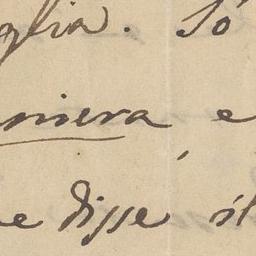 glia. So
niera, e
e disse il